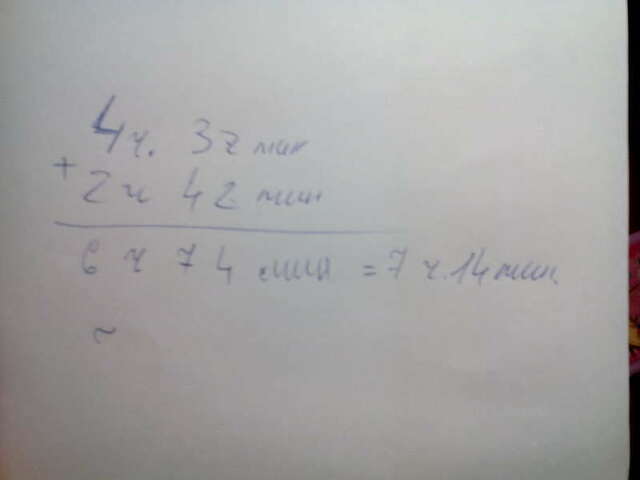 4 ч. 32 мин
+
2 ч 42 мин
6 ч 74 мин = 7 ч. 14 мин
~